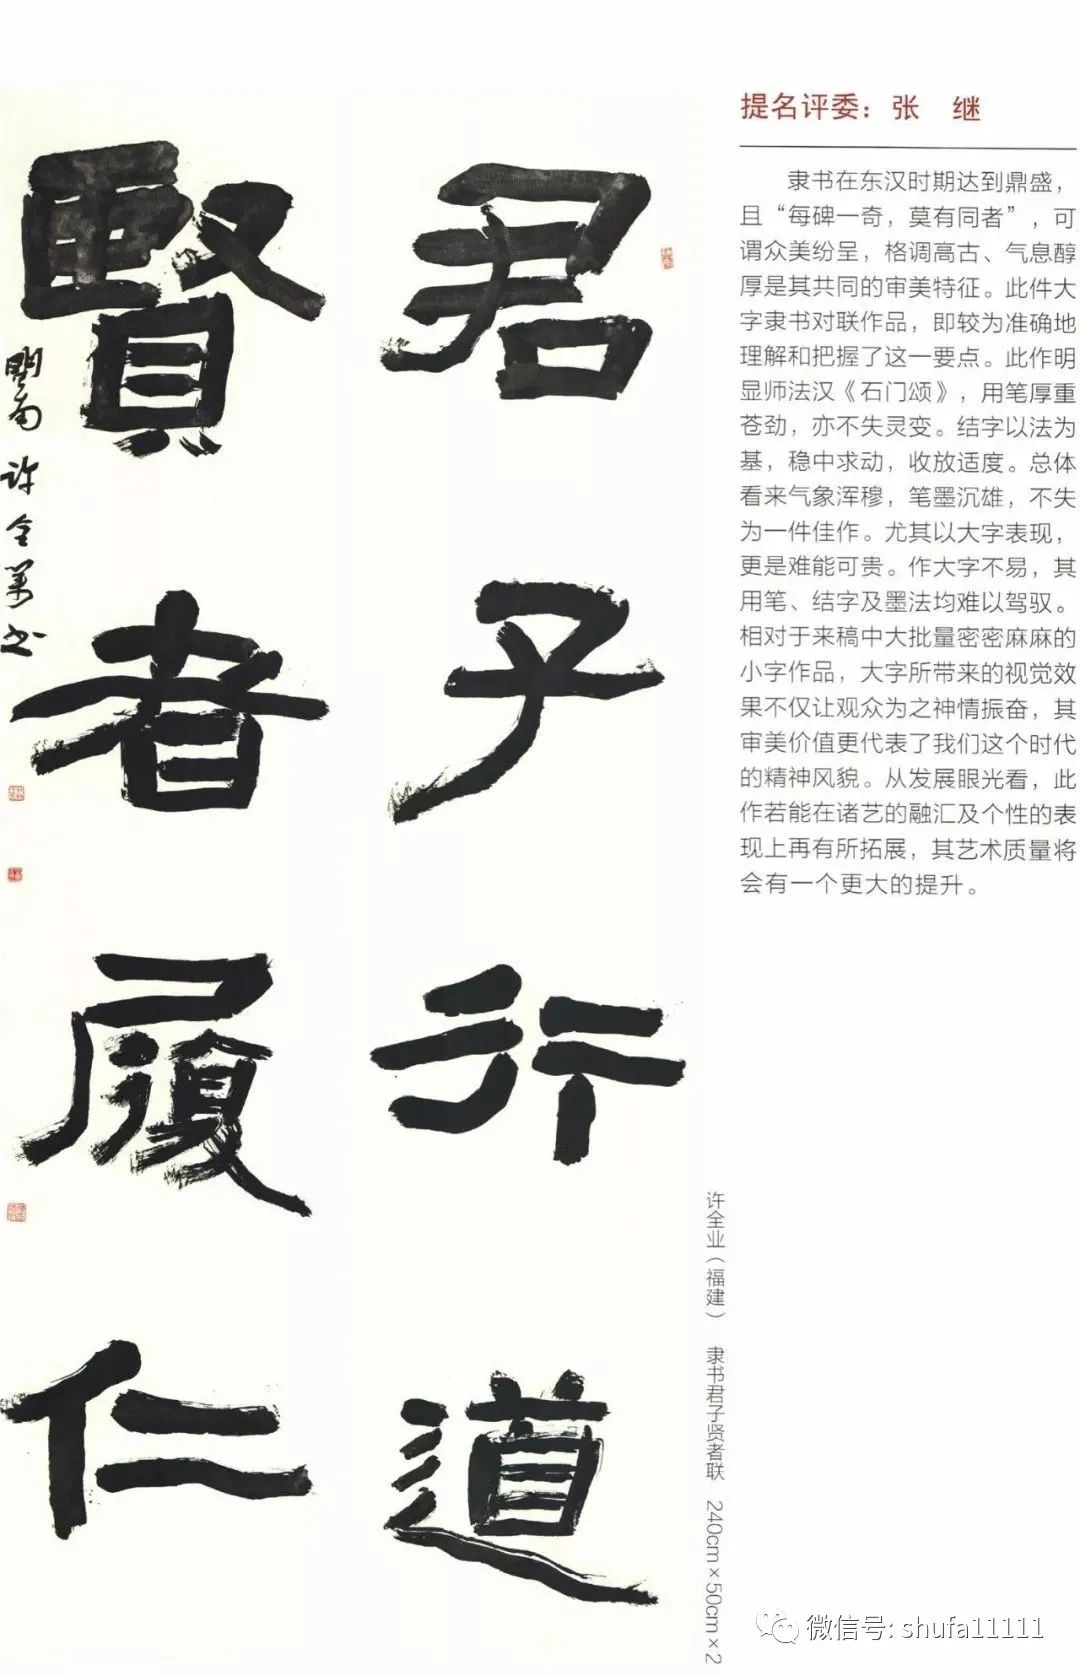 君子行道
賢者履仁
閩南许全業书
提名评委：张 继
隶书在东汉时期达到鼎盛，
且“每碑一奇，莫有同者”，可
谓众美纷呈，格调高古、气息醇
厚是其共同的审美特征。此件大
字隶书对联作品，即较为准确地
理解和把握了这一要点。此作明
显师法汉《石门颂》，用笔厚重
苍劲，亦不失灵变。结字以法为
基，稳中求动，收放适度。总体
看来气象浑穆，笔墨沉雄，不失
为一件佳作。尤其以大字表现，
更是难能可贵。作大字不易，其
用笔、结字及墨法均难以驾驭。
相对于来稿中大批量密密麻麻的
小字作品，大字所带来的视觉效
果不仅让观众为之神情振奋，其
审美价值更代表了我们这个时代
的精神风貌。从发展眼光看，此
作若能在诸艺的融汇及个性的表
现上再有所拓展，其艺术质量将
会有一个更大的提升。
许全业（福建） 隶书君子贤者联 240cm×50cm×2
微信号: shufa11111